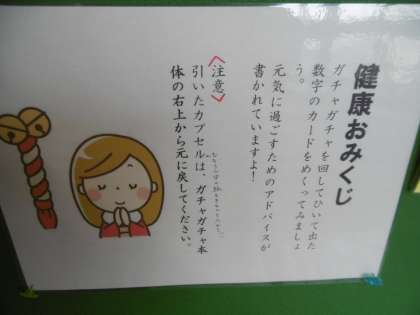 健康おみくじ
ガチャガチャを回してひいて出た
数字のカードをめくってみましょ
う。
元気に過ごすためのアドバイスが
書かれていますよ!
〈注意〉
引いたカプセルは、ガチャガチャ本
体の右上から元に戻してください。